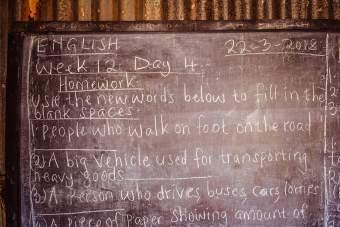 ENGLISH 22-3-2018
Week 12 Day 4
Homework
Use the new words below to fill in the
blank spaces.
1 people who walk on foot on the road
(2) A big vehicle used for transporting
heavy goods
(3) A Person who drives buses, cars, lorries
(4) A piece of paper showing amount of